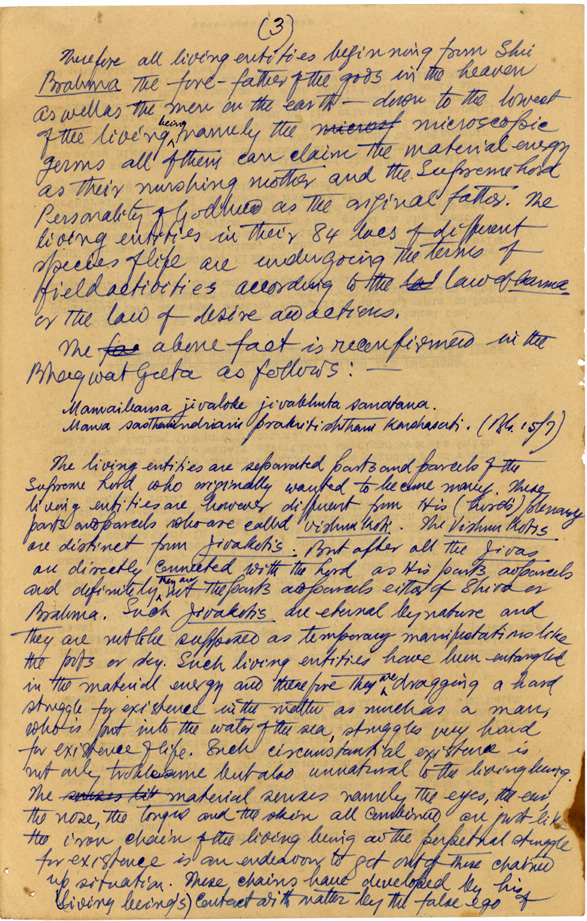 (3)
Therefore all living entities beginning from Shri
Brahma the fore-father of the gods in the heaven
as well as the men on the earth — down to the lowest
of the living being namely the microsc microscopic
germs all of them can claim the material energy
as their nurshing mother and the Supreme Lord
Personality of Godhead as the original father. The
living entities in their 84 lacs of different
species of life are undergoing the terms of
field activities according to the law of karma
or the law of desire and actions.
The above fact is reconfirmed in the
Bhagwat Geeta as follows: —
Mamaibamsa jivaloke jivabhuta sanatana.
Mana sasthanindriani prakritisthani Karshasati. (BG. 15/7)
The living entities are separated parts and parcels of the
Supreme Lord who originally wanted to become many. These
living entities are however different from His (Lord's) plenary
parts and parcels who are called Vishnukoti. The Vishnukotis
are distinct from Jivakotis. But after all the Jivas
are directly connected with the Lord as His parts and parcels
and definitely they are not the parts and parcels either of Shiva or
Brahma. Such Jivakotis are eternal by nature and
they are not to be supposed as temporary manifestations like
the pots or sky. Such living entities have been entangled
in the material energy and therefore they are dragging a hard
struggle for existence in the matter as much as a man,
who is put into the water of the sea, struggles very hard
for existence of life. Such circumstantial existence is
not only troublesome but also unnatural to the living being.
The senses material senses namely the eyes, the ear
the nose, the tongue and the skin all combined are just like
the iron chain of the living being and the perpetual struggle
for existence is an endeavour to get out of these chained
up situation. These chains have developed by his
(living being's) contact with matter by the false ego of